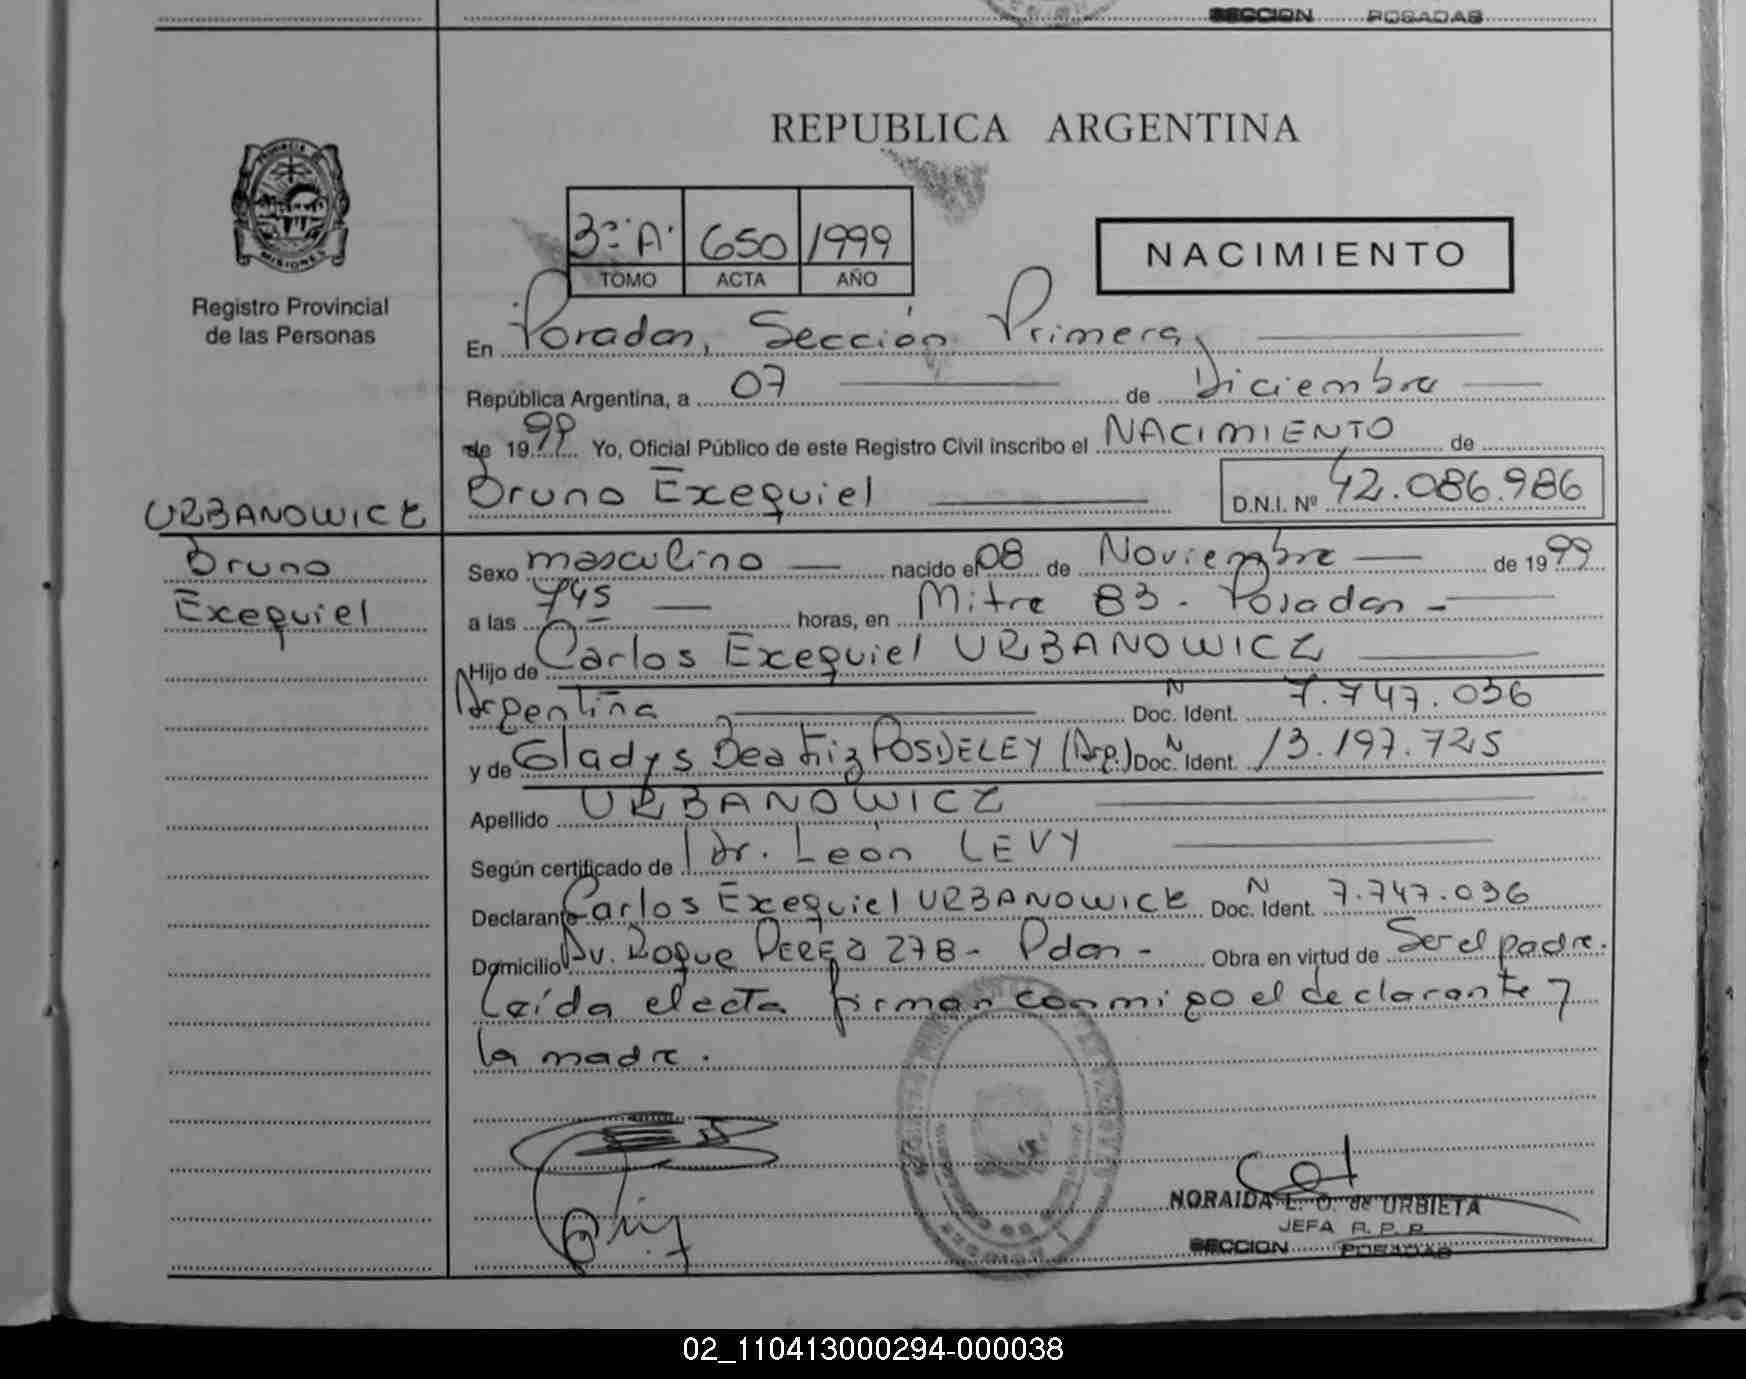 SECCION POSADAS
REPUBLICA ARGENTINA
PROVINCIA DE
MISIONES
Registro Provincial
de las Personas
3º "A" 650 1999
TOMO ACTA AÑO
NACIMIENTO
En Posadas, Sección Primera,
República Argentina, a 07 de Diciembre
de 1999 Yo, Oficial Público de este Registro Civil inscribo el NACIMIENTO de
Bruno Exequiel D.N.I. Nº 42.086.986
URBANOWICZ
Bruno
Exequiel
Sexo masculino nacido el 08 de Noviembre de 1999
a las 745 horas, en Mitre 83 - Posadas -
Hijo de Carlos Exequiel URBANOWICZ
Argentina Doc. Ident. N 7.747.036
y de Gladys Beatriz POSDELEY (Arg.) Doc. Ident. N 13.197.725
Apellido URBANOWICZ
Según certificado de Dr. León LEVY
Declarante Carlos Exequiel URBANOWICZ Doc. Ident. N 7.747.036
Domicilio Av. Roque PEREZ 278 - Pdas - Obra en virtud de Ser el padre.
Leída el acta firman conmigo el declarante y
la madre.
NORAIDA L. O. de URBIETA
JEFA R. P. P.
SECCION POSADAS
02_110413000294-000038